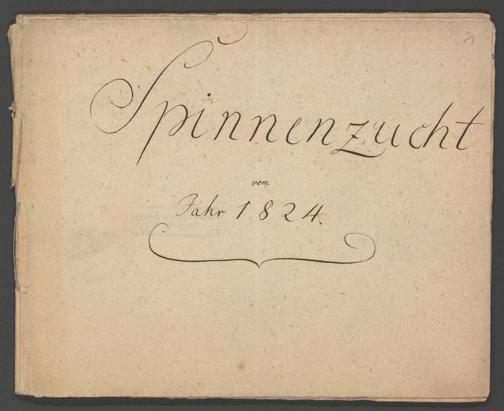 Spinnenzucht
vom
Jahr 1824.